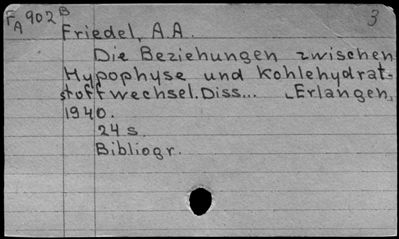 F 902 B 3
A
Friedel, A.A.
Die Beziehungen zwischen
Hypophyse und Kohlehydrat-
stoffwechsel. Diss... Erlangen,
1940.
24 s.
Bibliogr.